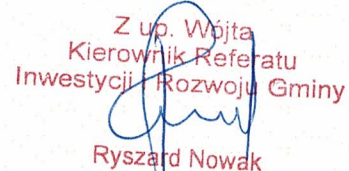 Z up. Wójta
Kierownik Referatu
Inwestycji i Rozwoju Gminy
Ryszard Nowak